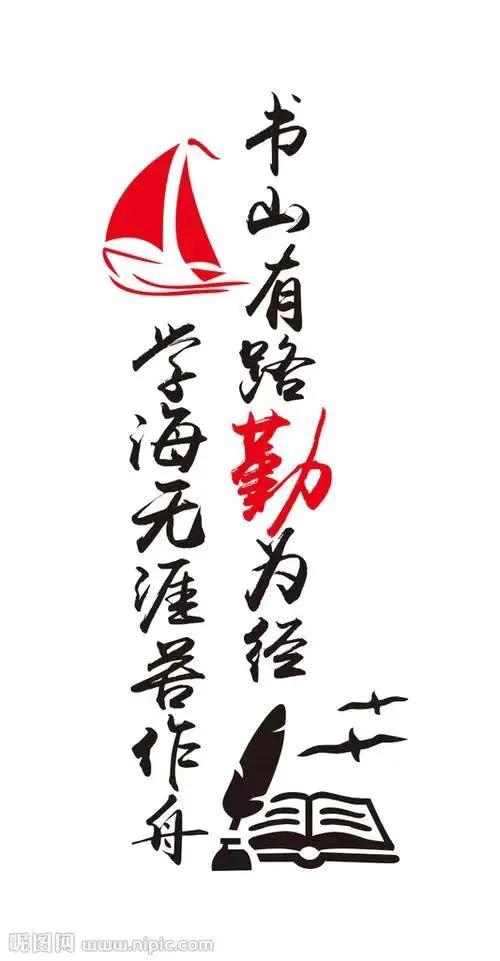 书山有路勤为经
学海无涯苦作舟
昵图网 www.nipic.com